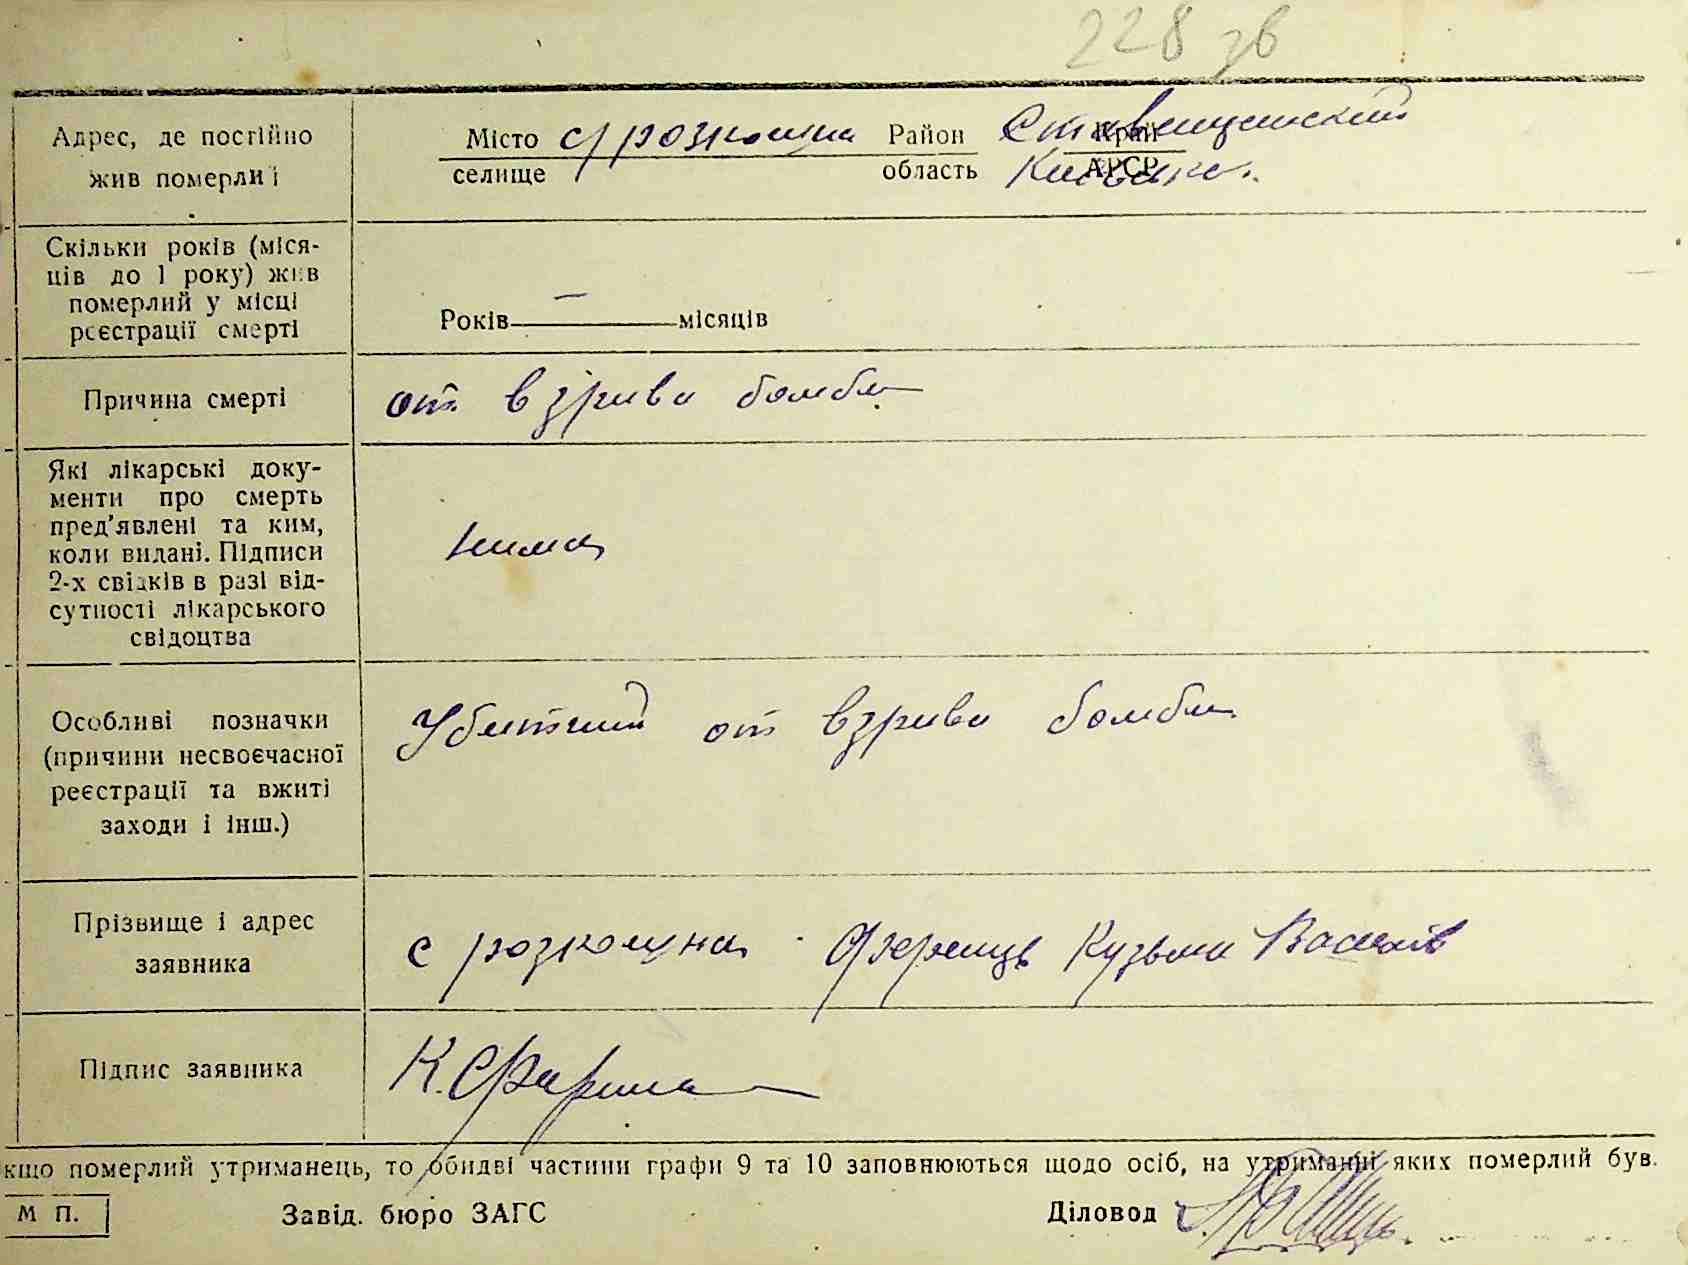 228 зв
Адрес, де постійно
жив померлиі
Місто с розкошна Район Ставищенский Край
селище область Київська АРСР
Скільки років (міся-
ців до 1 року) жив
померлий у місці
реєстрації смерті
Років — місяців
Причина смерті
от взрива бомби
Які лікарські доку-
менти про смерть
пред'явлені та ким,
коли видані. Підписи
2-х свідків в разі від-
сутності лікарського
свідоцтва
нима
Особливі позначки
(причини несвоєчасної
реєстрації та вжиті
заходи і інш.)
Убитий от взрива бомби
Прізвище і адрес
заявника
с розкошна Кузьма Василів
Підпис заявника
К.
кщо померлий утриманець, то обидві частини графи 9 та 10 заповнюються щодо осіб, на утриманні яких померлий був.
М П. Завід. бюро ЗАГС Діловод